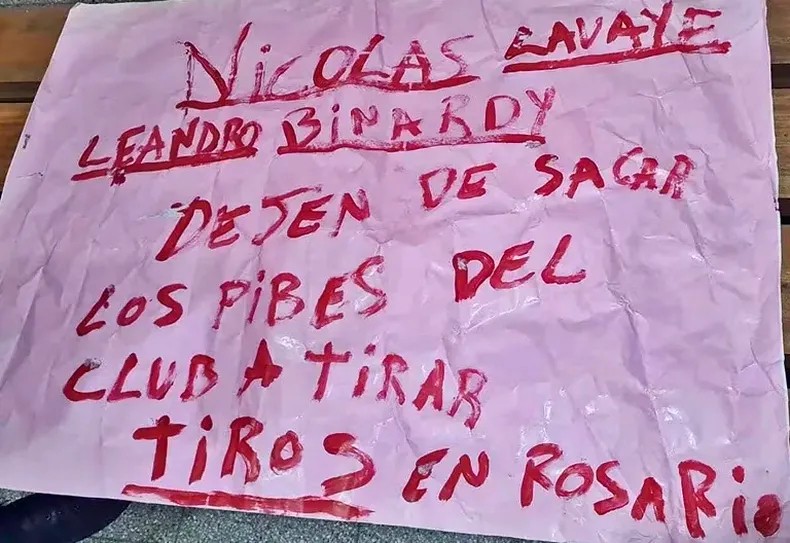 NICOLAS LAVAYE
LEANDRO BINARDY
DEJEN DE SACAR
LOS PIBES DEL
CLUB A TIRAR
TIROS EN ROSARIO